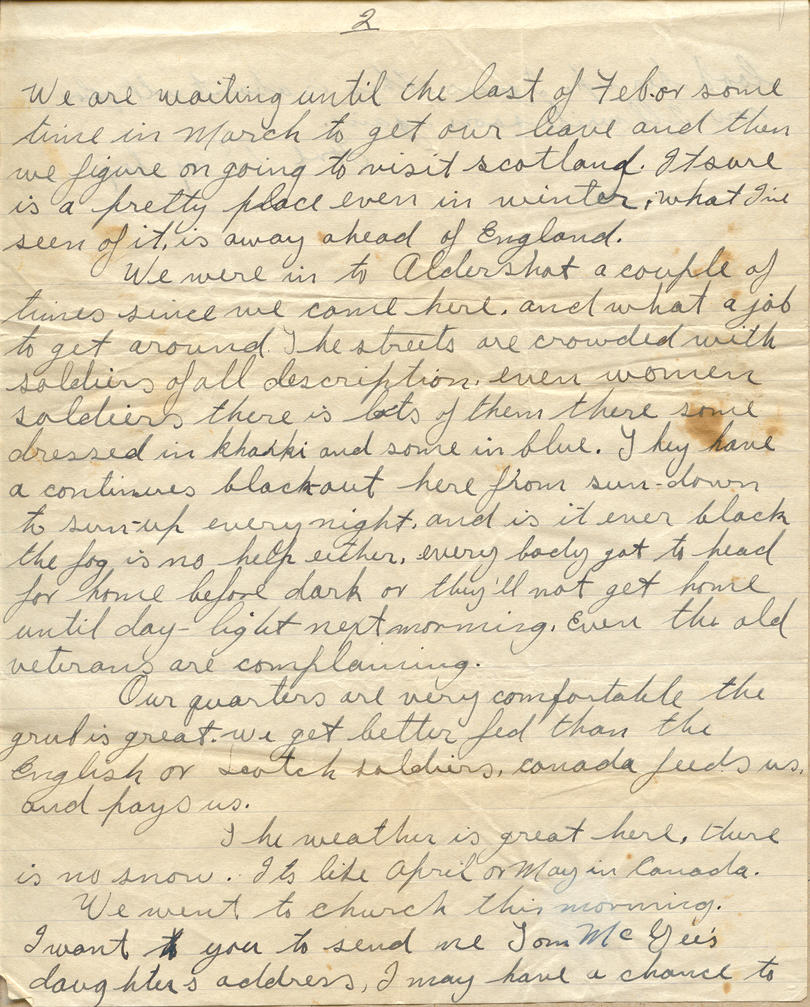 2
We are waiting until the last of Feb. or some
time in March to get our leave and then
we figure on going to visit scotland. It sure
is a pretty place even in winter, what I've
seen of it, is away ahead of England.
We were in to Aldershot a couple of
times since we came here, and what a job
to get around. The streets are crowded with
soldiers of all description, even women
soldiers there is lots of them there some
dressed in khadki and some in blue. They have
a continues black-out here from sun-down
to sun-up every night, and is it ever black
the fog is no help either, every body got to head
for home before dark or they'll not get home
until day-light next morning. Even the old
veterans are complaining.
Our quarters are very comfortable the
grub is great. we get better fed than the
English or Scotch soldiers, canada feeds us,
and pays us.
The weather is great here, there
is no snow. Its like April or May in Canada.
We went to church this morning.
I want you to send me Tom McGee's
daughters address, I may have a chance to